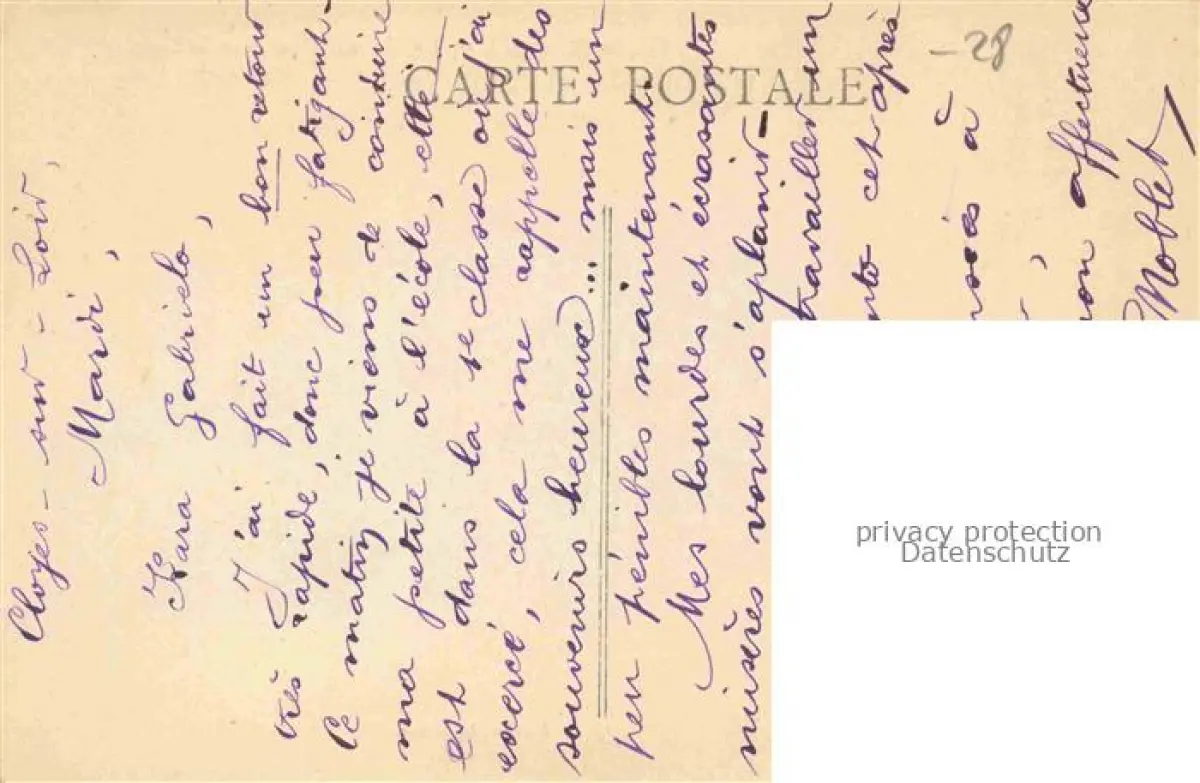 CARTE POSTALE
-28
Cloyes-sur-Loir,
Mardi,
Kara Gabrielo,
J'ai fait un bon retour
très rapide, donc peu fatigant-
Ce matin je viens de conduire
ma petite à l'école, elle
est dans la se classe où j'ai
exercé, cela me rappelle des
souvenirs heureux... mais un
peu pénibles maintenant.
Mes lourdes et écrasantes
misères vont s'aplanir-
travailler un
cet après
à
mon affectueux
Noblet
privacy protection
Datenschutz